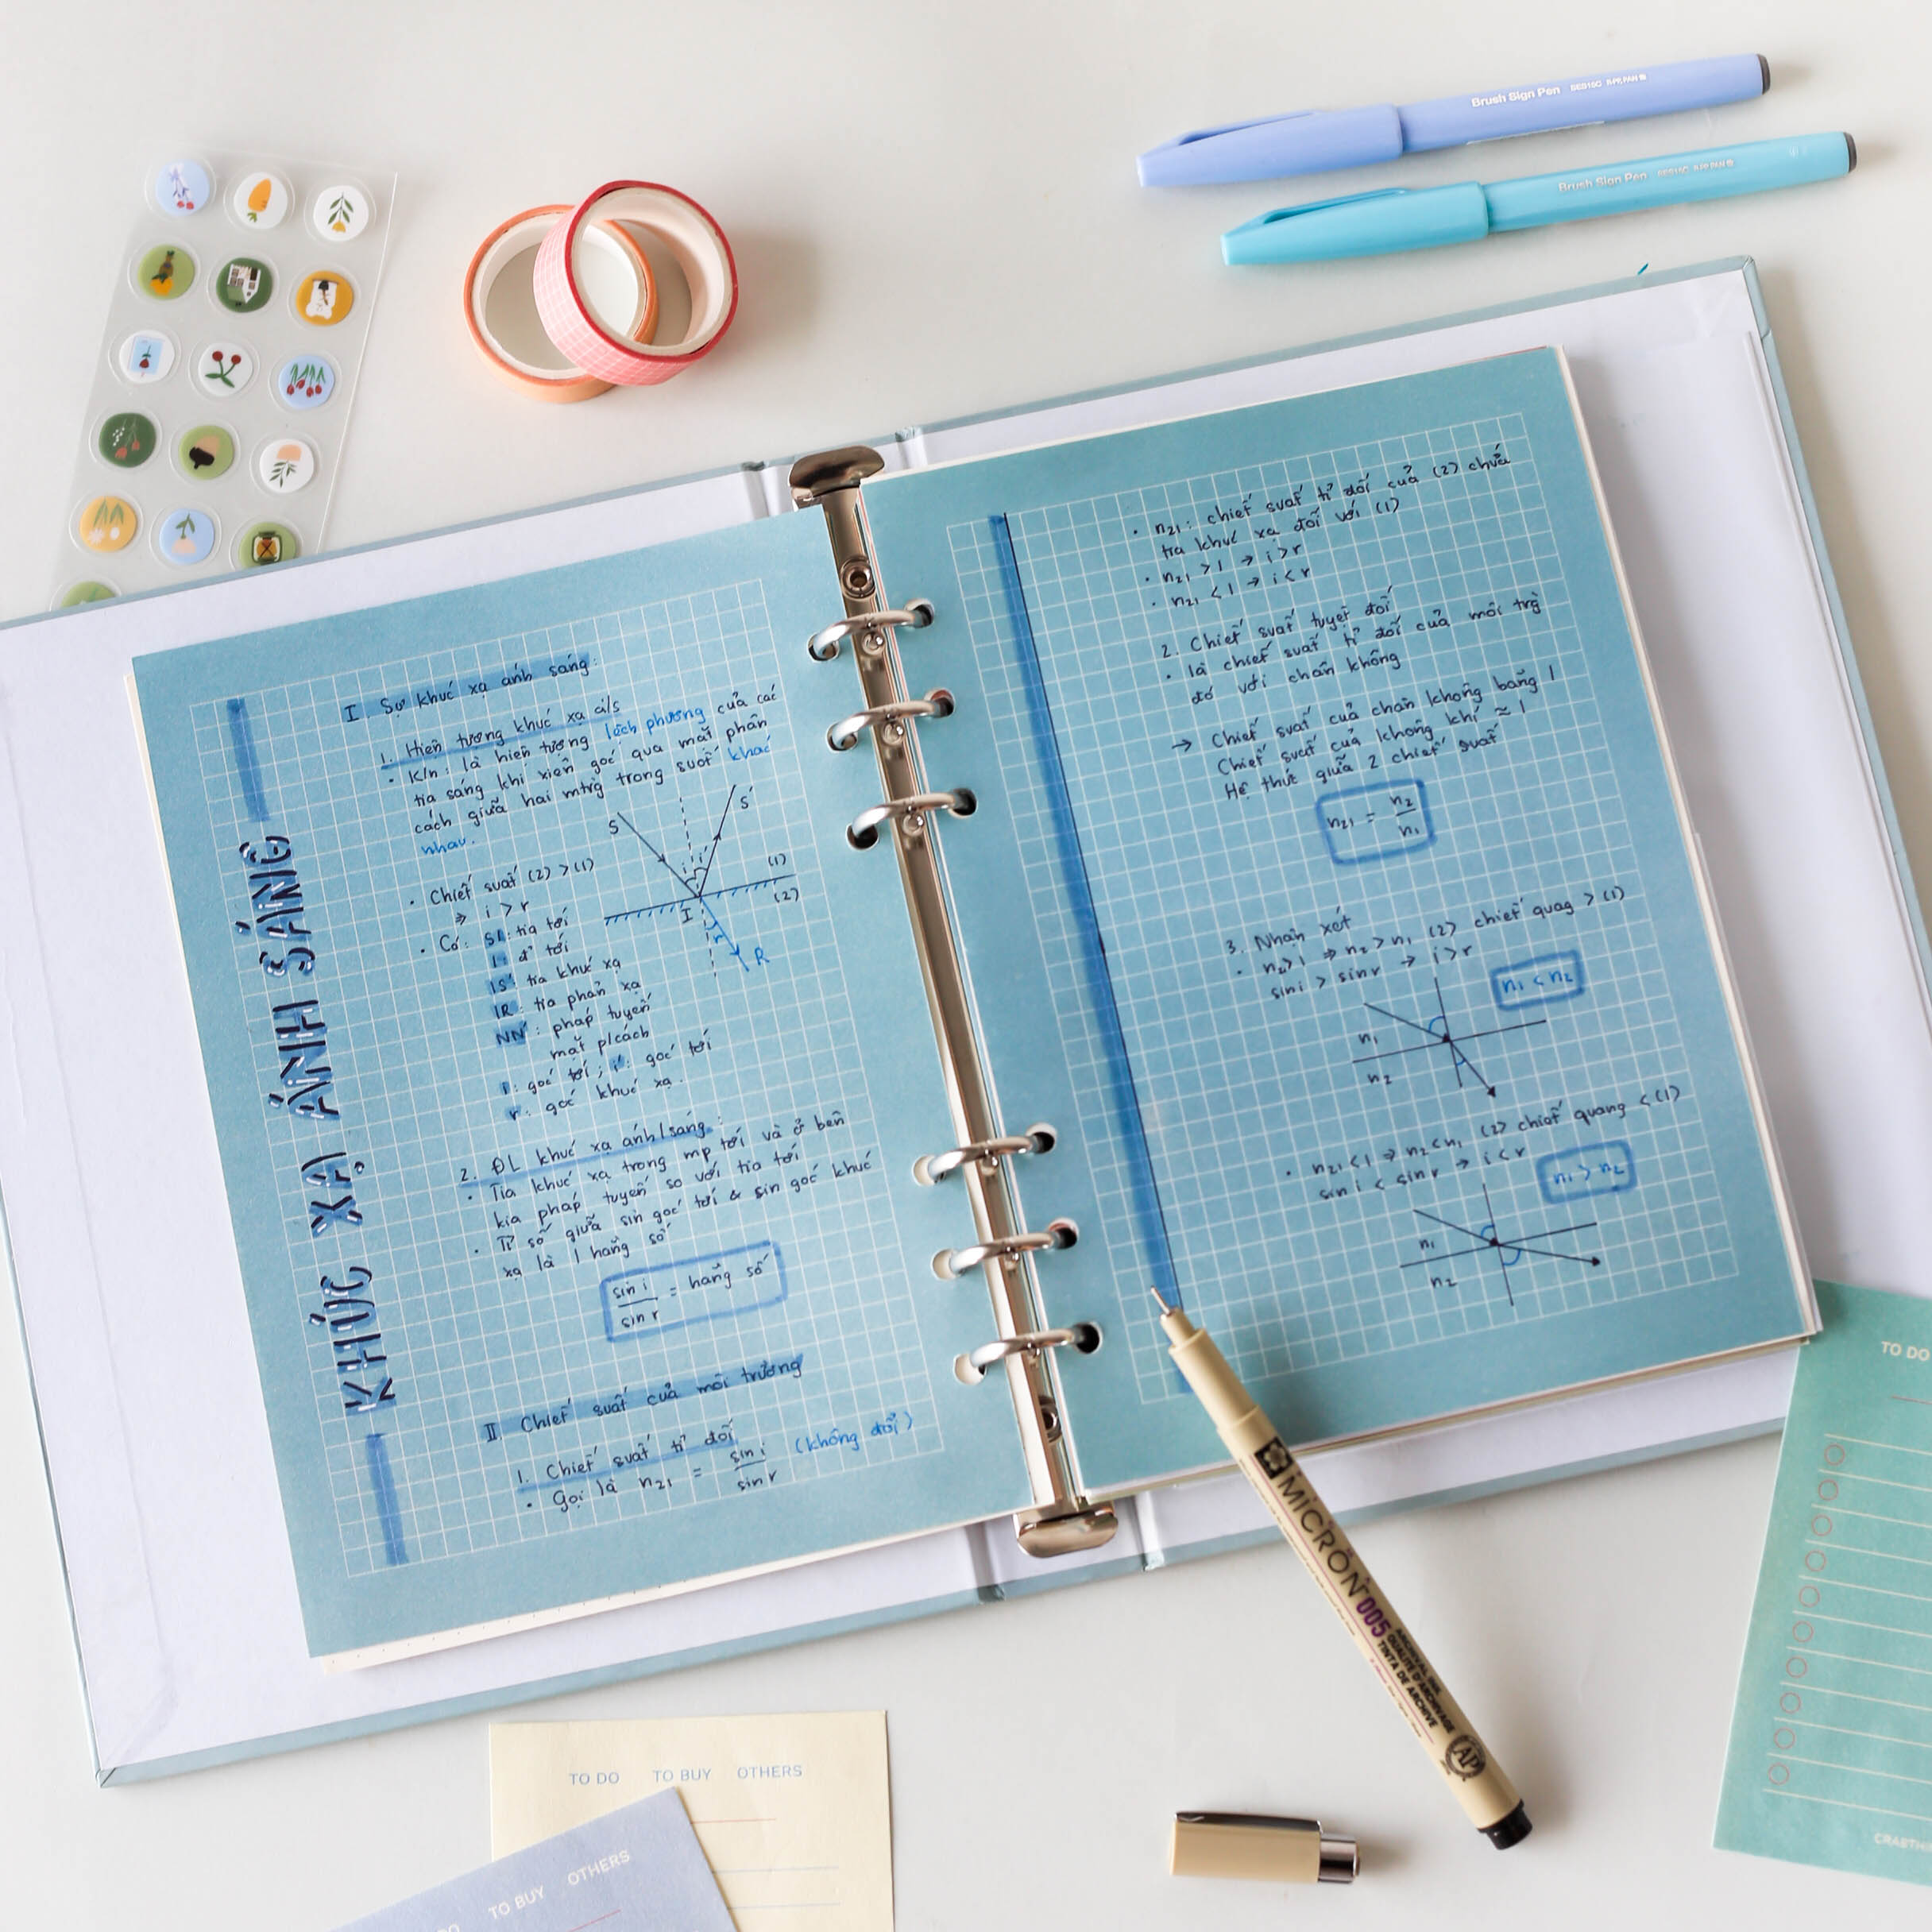 Brush Sign Pen SES15C
Brush Sign Pen SES15C
KHÚC XẠ ÁNH SÁNG
I. Sự khúc xạ ánh sáng:
1. Hiện tượng khúc xạ a/s
• K/n: là hiện tượng lệch phương của các
tia sáng khi xiên góc qua mặt phân
cách giữa hai mtrg trong suốt khác
nhau.
S
S'
(1)
(2)
I
r
R
• Chiết suất (2) > (1)
⇒ i > r
• Có: SI: tia tới
I: đ' tới
IS': tia khúc xạ
IR: tia phản xạ
NN': pháp tuyến
mặt p/cách
i: góc tới; i': góc tới
r: góc khúc xạ.
2. ĐL khúc xạ ánh/sáng:
• Tia khúc xạ trong mp tới và ở bên
kia pháp tuyến so với tia tới
• Tỉ số giữa sin góc tới & sin góc khúc
xạ là 1 hằng số
sin i / sin r = hằng số
II. Chiết suất của môi trường
1. Chiết suất tỉ đối
• Gọi là n21 = sin i / sin r (không đổi)
• n21: chiết suất tỉ đối của (2) chứa
tia khúc xạ đối với (1)
• n21 > 1 → i > r
• n21 < 1 → i < r
2. Chiết suất tuyệt đối
• là chiết suất tỉ đối của môi trg
đó với chân không
→ Chiết suất của chân không bằng 1
Chiết suất của không khí ≈ 1
Hệ thức giữa 2 chiết suất
n21 = n2 / n1
3. Nhận xét
• n21 > 1 ⇒ n2 > n1 (2) chiết quag > (1)
sin i > sin r → i > r
n1 < n2
n1
n2
• n21 < 1 ⇒ n2 < n1 (2) chiết quang < (1)
sin i < sin r → i < r
n1 > n2
n1
n2
MICRON 005
ARCHIVAL INK
QUALITÉ D'ARCHIVAGE
TINTA DE ARCHIVE
AP
TO DO TO BUY OTHERS
TO BUY OTHERS
TO DO